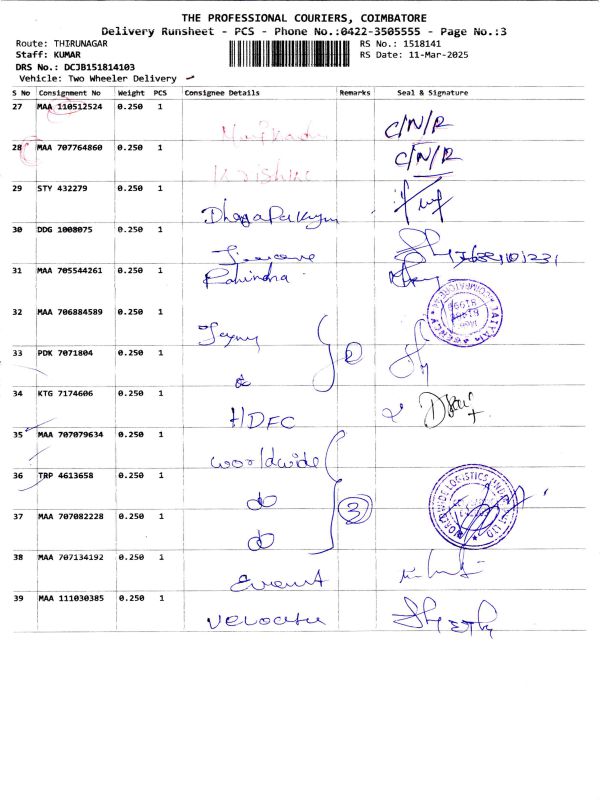 THE PROFESSIONAL COURIERS, COIMBATORE
Delivery Runsheet - PCS - Phone No.:0422-3505555 - Page No.:3
Route: THIRUNAGAR
RS No.: 1518141
Staff: KUMAR
RS Date: 11-Mar-2025
DRS No.: DCJB151814103
Vehicle: Two Wheeler Delivery
S No Consignment No Weight PCS Consignee Details Remarks Seal & Signature
27 MAA 110512524 0.250 1
C/N/R
28 MAA 707764860 0.250 1
Krishna C/N/R
29 STY 432279 0.250 1
30 DDG 1008075 0.250 1
31 MAA 705544261 0.250 1
Rahindra
32 MAA 706884589 0.250 1
33 PDK 7071804 0.250 1
34 KTG 7174606 0.250 1
HDFC
35 MAA 707079634 0.250 1
worldwide
36 TRP 4613658 0.250 1
3
37 MAA 707082228 0.250 1
38 MAA 707134192 0.250 1
39 MAA 111030385 0.250 1